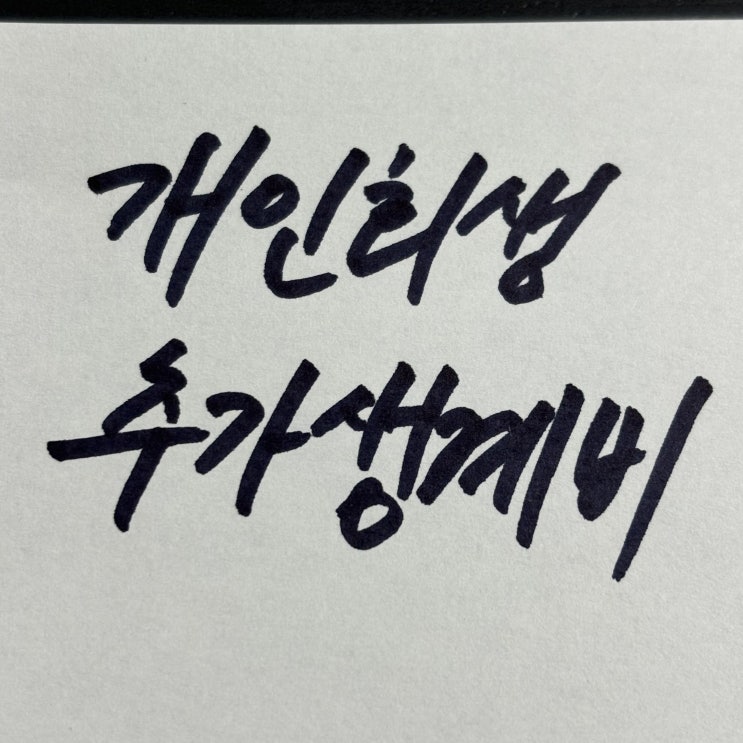 개인회생
추가생계비